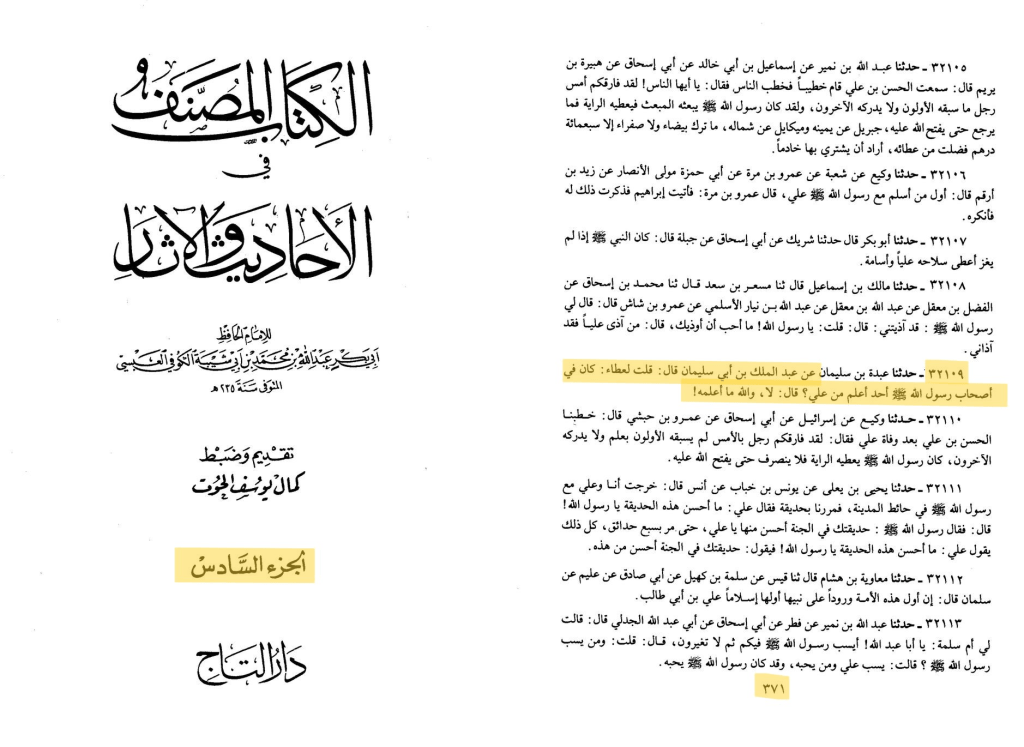 الكتاب المصنف
في
الأحاديث والآثار
للإمام الحافظ
أبي بكر عبد الله بن محمد بن أبي شيبة الكوفي العبسي
المتوفى سنة ٢٣٥ هـ
تقديم وضبط
كمال يوسف الحوت
الجزء السادس
دار التاج
٣٢١٠٥ ـ حدثنا عبد الله بن نمير عن إسماعيل بن أبي خالد عن أبي إسحاق عن هبيرة بن
يريم قال: سمعت الحسن بن علي قام خطيباً فخطب الناس فقال: يا أيها الناس! لقد فارقكم أمس
رجل ما سبقه الأولون ولا يدركه الآخرون، ولقد كان رسول الله ﷺ يبعثه المبعث فيعطيه الراية فما
يرجع حتى يفتح الله عليه، جبريل عن يمينه وميكايل عن شماله، ما ترك بيضاء ولا صفراء إلا سبعمائة
درهم فضلت من عطائه، أراد أن يشتري بها خادماً.
٣٢١٠٦ ـ حدثنا وكيع عن شعبة عن عمرو بن مرة عن أبي حمزة مولى الأنصار عن زيد بن
أرقم قال: أول من أسلم مع رسول الله ﷺ علي، قال عمرو بن مرة: فأتيت إبراهيم فذكرت ذلك له
فأنكره.
٣٢١٠٧ ـ حدثنا أبو بكر قال حدثنا شريك عن أبي إسحاق عن جبلة قال: كان النبي ﷺ إذا لم
يغز أعطى سلاحه علياً وأسامة.
٣٢١٠٨ ـ حدثنا مالك بن إسماعيل قال ثنا مسعر بن سعد قال ثنا محمد بن إسحاق عن
الفضل بن معقل عن عبد الله بن معقل عن عبد الله بن نيار الأسلمي عن عمرو بن شاش قال: قال لي
رسول الله ﷺ : قد آذيتني: قال: قلت: يا رسول الله! ما أحب أن أوذيك، قال: من آذى علياً فقد
آذاني.
٣٢١٠٩ ـ حدثنا عبدة بن سليمان عن عبد الملك بن أبي سليمان قال: قلت لعطاء: كان في
أصحاب رسول الله ﷺ أحد أعلم من علي؟ قال: لا، والله ما أعلمه!
٣٢١١٠ ـ حدثنا وكيع عن إسرائيل عن أبي إسحاق عن عمرو بن حبشي قال: خطبنا
الحسن بن علي بعد وفاة علي فقال: لقد فارقكم رجل بالأمس لم يسبقه الأولون بعلم ولا يدركه
الآخرون، كان رسول الله ﷺ يعطيه الراية فلا ينصرف حتى يفتح الله عليه.
٣٢١١١ ـ حدثنا يحيى بن يعلى عن يونس بن خباب عن أنس قال: خرجت أنا وعلي مع
رسول الله ﷺ في حائط المدينة، فمررنا بحديقة فقال علي: ما أحسن هذه الحديقة يا رسول الله!
قال: فقال رسول الله ﷺ : حديقتك في الجنة أحسن منها يا علي، حتى مر بسبع حدائق، كل ذلك
يقول علي: ما أحسن هذه الحديقة يا رسول الله! فيقول: حديقتك في الجنة أحسن من هذه.
٣٢١١٢ ـ حدثنا معاوية بن هشام قال ثنا قيس عن سلمة بن كهيل عن أبي صادق عن عليم عن
سلمان قال: إن أول هذه الأمة وروداً على نبيها أولها إسلاماً علي بن أبي طالب.
٣٢١١٣ ـ حدثنا عبد الله بن نمير عن فطر عن أبي إسحاق عن أبي عبد الله الجدلي قال: قالت
لي أم سلمة: يا أبا عبد الله! أيسب رسول الله ﷺ فيكم ثم لا تغيرون، قال: قلت: ومن يسب
رسول الله ﷺ ؟ قالت: يسب علي ومن يحبه، وقد كان رسول الله ﷺ يحبه.
٣٧١